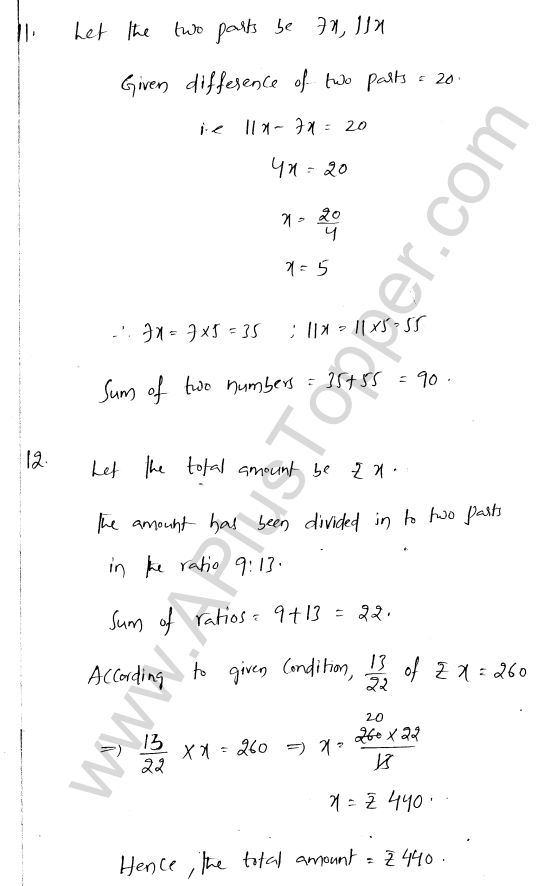 11. Let the two parts be 7x, 11x
Given difference of two parts = 20.
i.e 11x - 7x = 20
4x = 20
x = 20/4
x = 5
∴ 7x = 7x5 = 35 ; 11x = 11x5 = 55
Sum of two numbers = 35+55 = 90.
12. Let the total amount be ₹ x.
The amount has been divided in to two parts
in the ratio 9:13.
Sum of ratios = 9+13 = 22.
According to given Condition, 13/22 of ₹ x = 260
⇒ 13/22 × x = 260 ⇒ x = 20 260 × 22 / 13
x = ₹ 440.
Hence, the total amount = ₹ 440.
www.APlusTopper.com